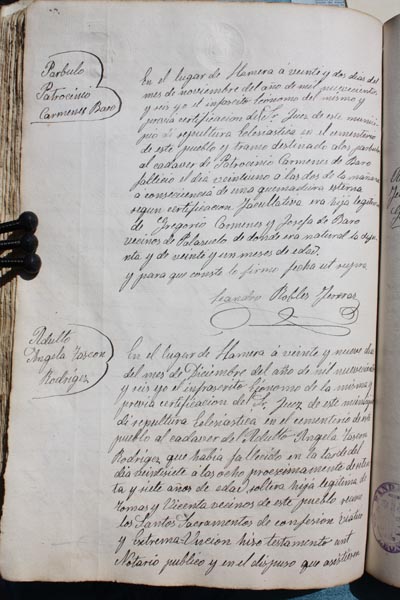 Parbulo
Patrocinio
Carmenes Baro
En el lugar de Llamera á veinte y dos dias del
mes de noviembre del año de mil novecientos
y seis yo el infrascrito Ecónomo del mismo y
previa certificacion del Sr. Juez de este munici
pio di sepultura Eclesiastica en el cementerio
de este pueblo y tramo destinado a los parbulos
al cadaver de Patrocinio Carmenes de Baro
fallecio el dia veintiuno á las dos de la mañana
a consecuencia de una quemadura esterna
segun certificacion facultativa era hija legitima
de Gregorio Carmenes y Josefa de Baro
vecinos de Palazuelo de donde era natural la difun
ta, y de veinte y un meses de edad.
y para que conste lo firmo fecha ut supra
Leandro Robles
Adulto
Angela Yascon
Rodrigez
En el lugar de Llamera á veinte y nueve dias
del mes de Diciembre del año de mil novecientos
y seis yo el infrascrito Ecónomo de la misma y
previa certificacion del Sr. Juez de este municipio
di sepultura Eclesiastica en el cementerio de este
pueblo al cadaver del Adulto Angela Yascon
Rodrigez que habia fallecido en la tarde del
dia á las ocho proxsimamente de
ta y siete años de edad, soltera hija legitima de
Tomas y Vicenta vecinos de este pueblo
los Santos Sacramentos de confesion Viatico
y Extrema-Uncion hiso testamento ant
Notario publico y en el dispuso que asistieran